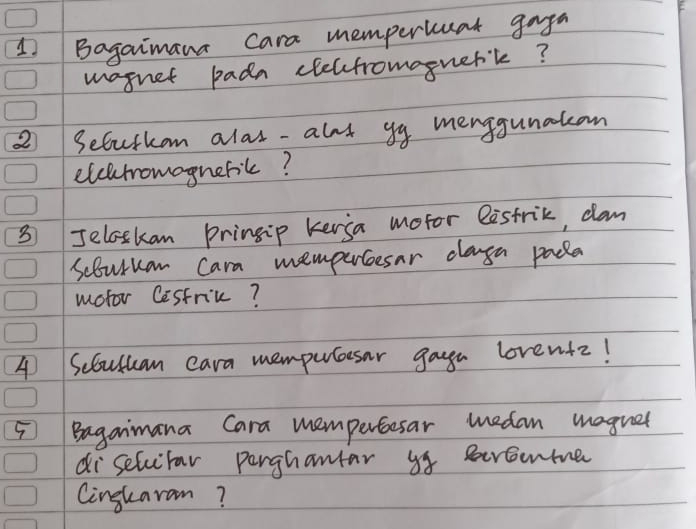 1. Bagaimana cara memperkuat gaya
magnet pada elektromagnetik ?
2 Sebutkan alat - alat yg menggunakan
elektromagnetik ?
3 Jelaskan prinsip kerja motor listrik, dan
Sebutkan cara memperbesar daya pada
motor listrik ?
4 Sebutkan cara memperbesar gaya lorentz !
5 Bagaimana cara memperbesar medan magnet
di sekitar penghantar yg berbentuk
lingkaran ?